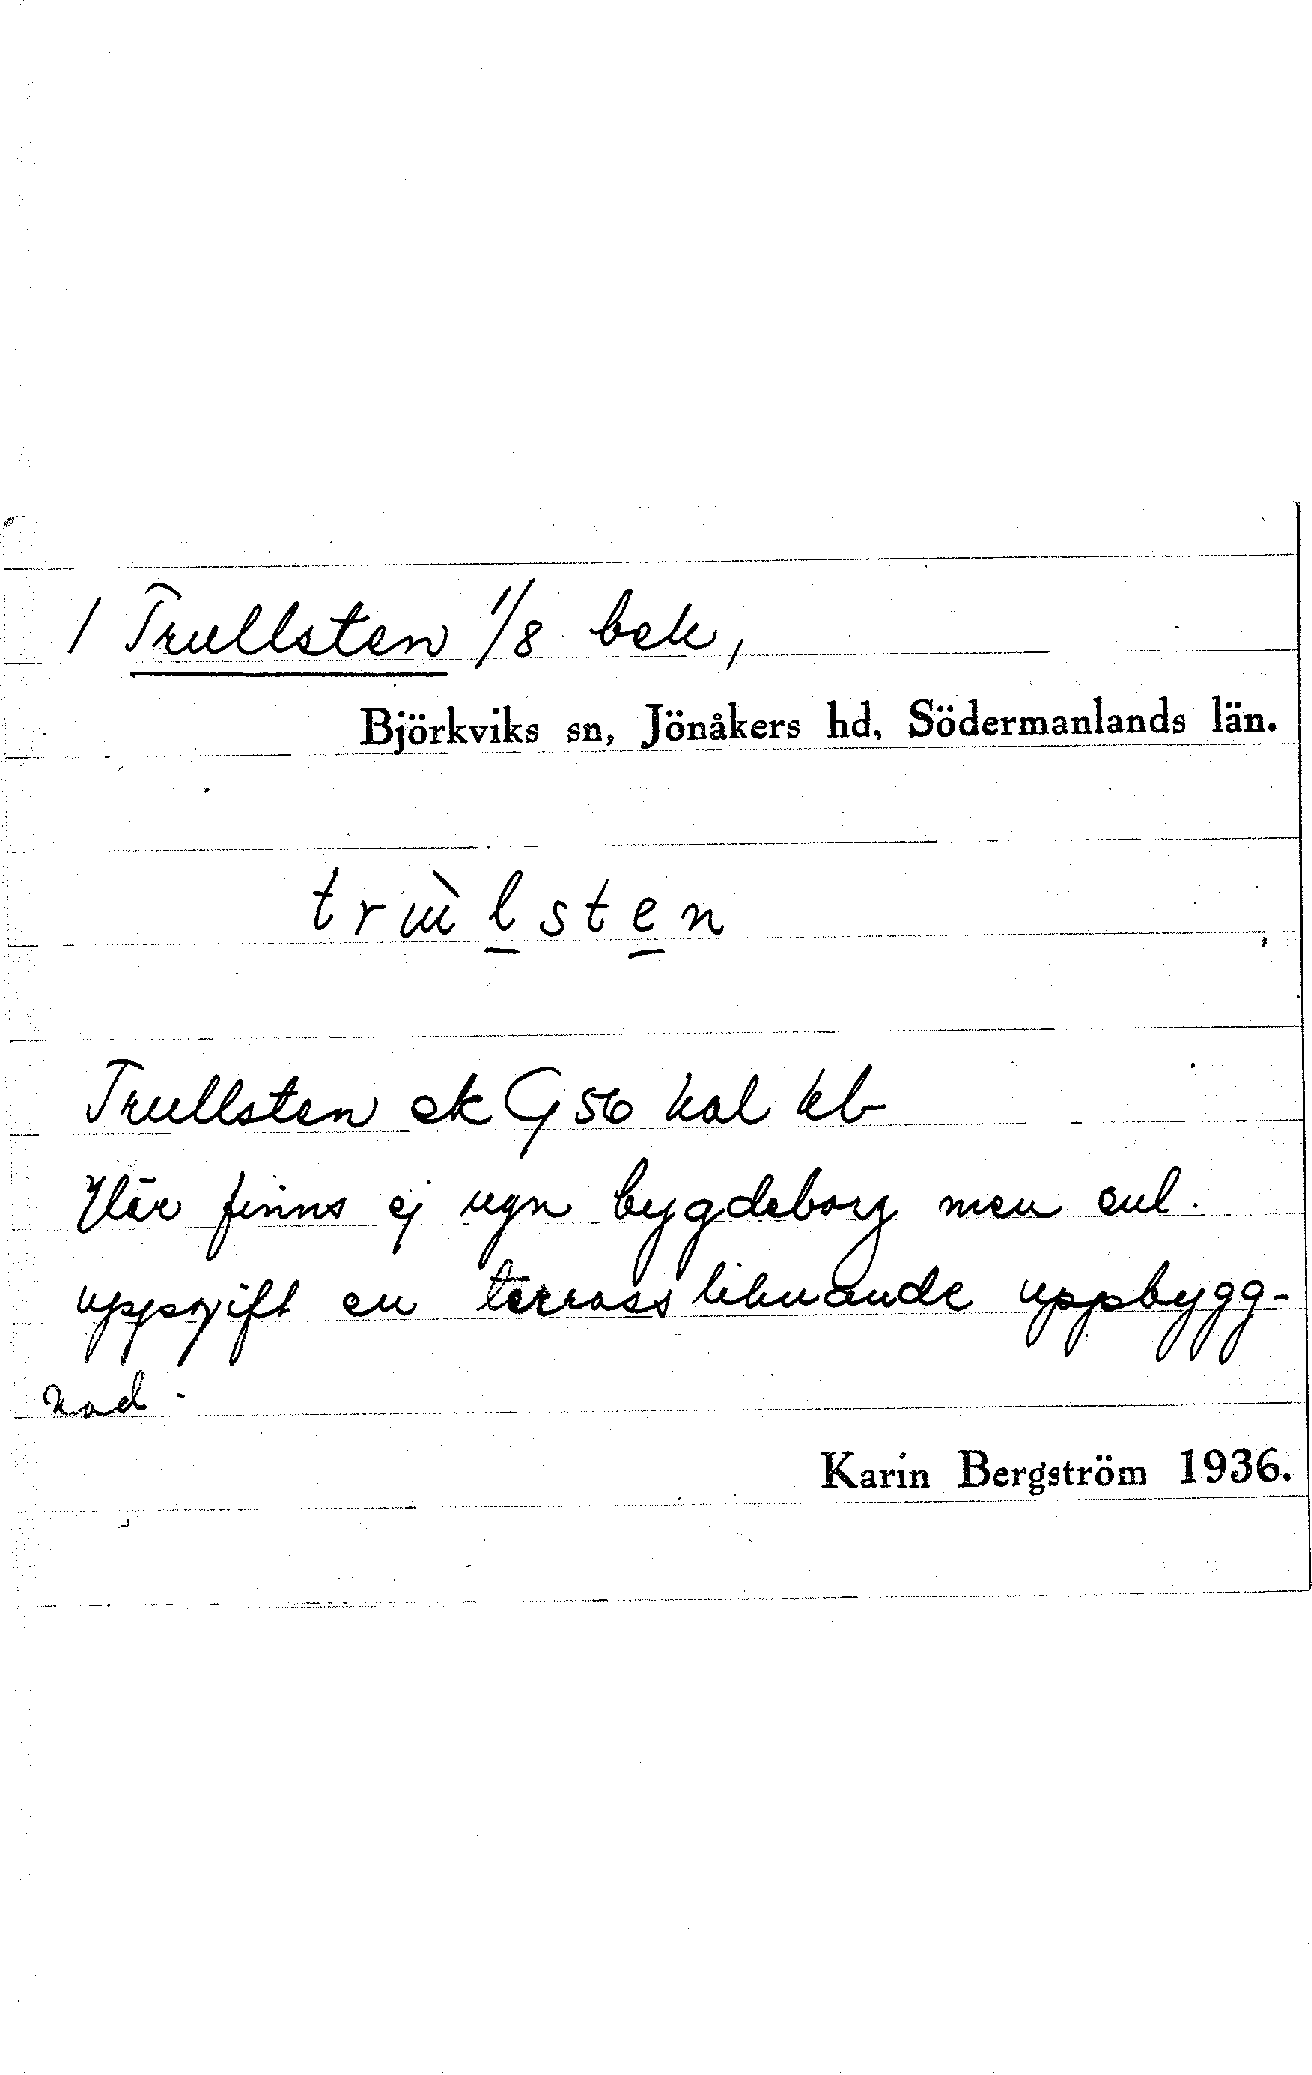 / Trullsten 1/8 bek,
Björkviks sn, Jönåkers hd, Södermanlands län.
trùlsten
Trullsten ek G 56 kal kb
Här finns ej ngn bygdeborg men enl.
uppgift en terrassliknande uppbygg-
nad.
Karin Bergström 1936.